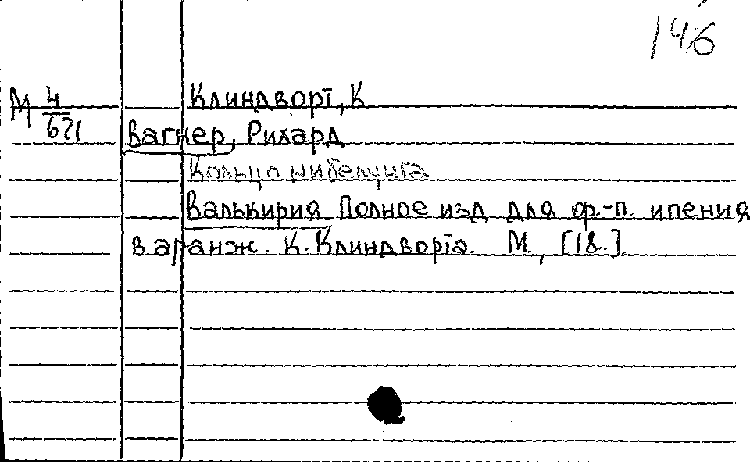 146
М 4/621
Клиндворт, К
Вагнер, Рихард
Кольцо нибелунга
Валькирия Полное изд для ф.-п. и пения
в аранж. К. Клиндворта. М, [18.]